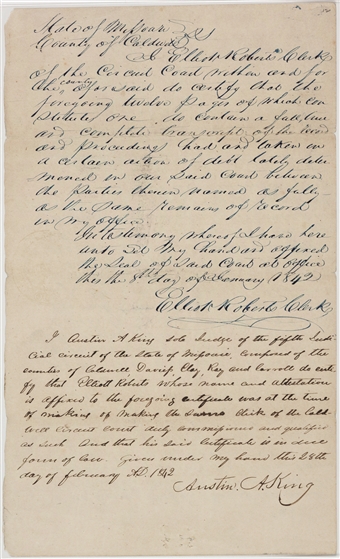 State of Missouri
County of Caldwell
I Elliott Roberts Clerk
of the Circuit Court within and for
county
the aforesaid do certify that the
foregoing twelve pages of which con
stitutes one, do contain a full true
and complete transcript of the record
and Proceedings had and taken in
a certain action of debt lately deter
mined in our Said Court between
the Parties therein named as fully
as the same remains of record
in my office
In testimony whereof I have here
unto Set my hand and affixed
the Seal of Said Court at office
this the 8th day of January 1842
Elliott Roberts Clerk
I Austin A King sole Judge of the fifth Judi
cial circuit of the State of Missouri, composed of the
counties of Caldwell Daviess Clay, Ray and Carroll do certi
fy that Elliott Roberts whose name and attestation
is affixed to the foregoing certificate was at the time
of making of making the same clerk of the Cald
well Circuit court duly commissioned and qualified
as such And that his said Certificate is in due
form of law. Given under my hand this 28th
day of february AD. 1842
Austin. A. King